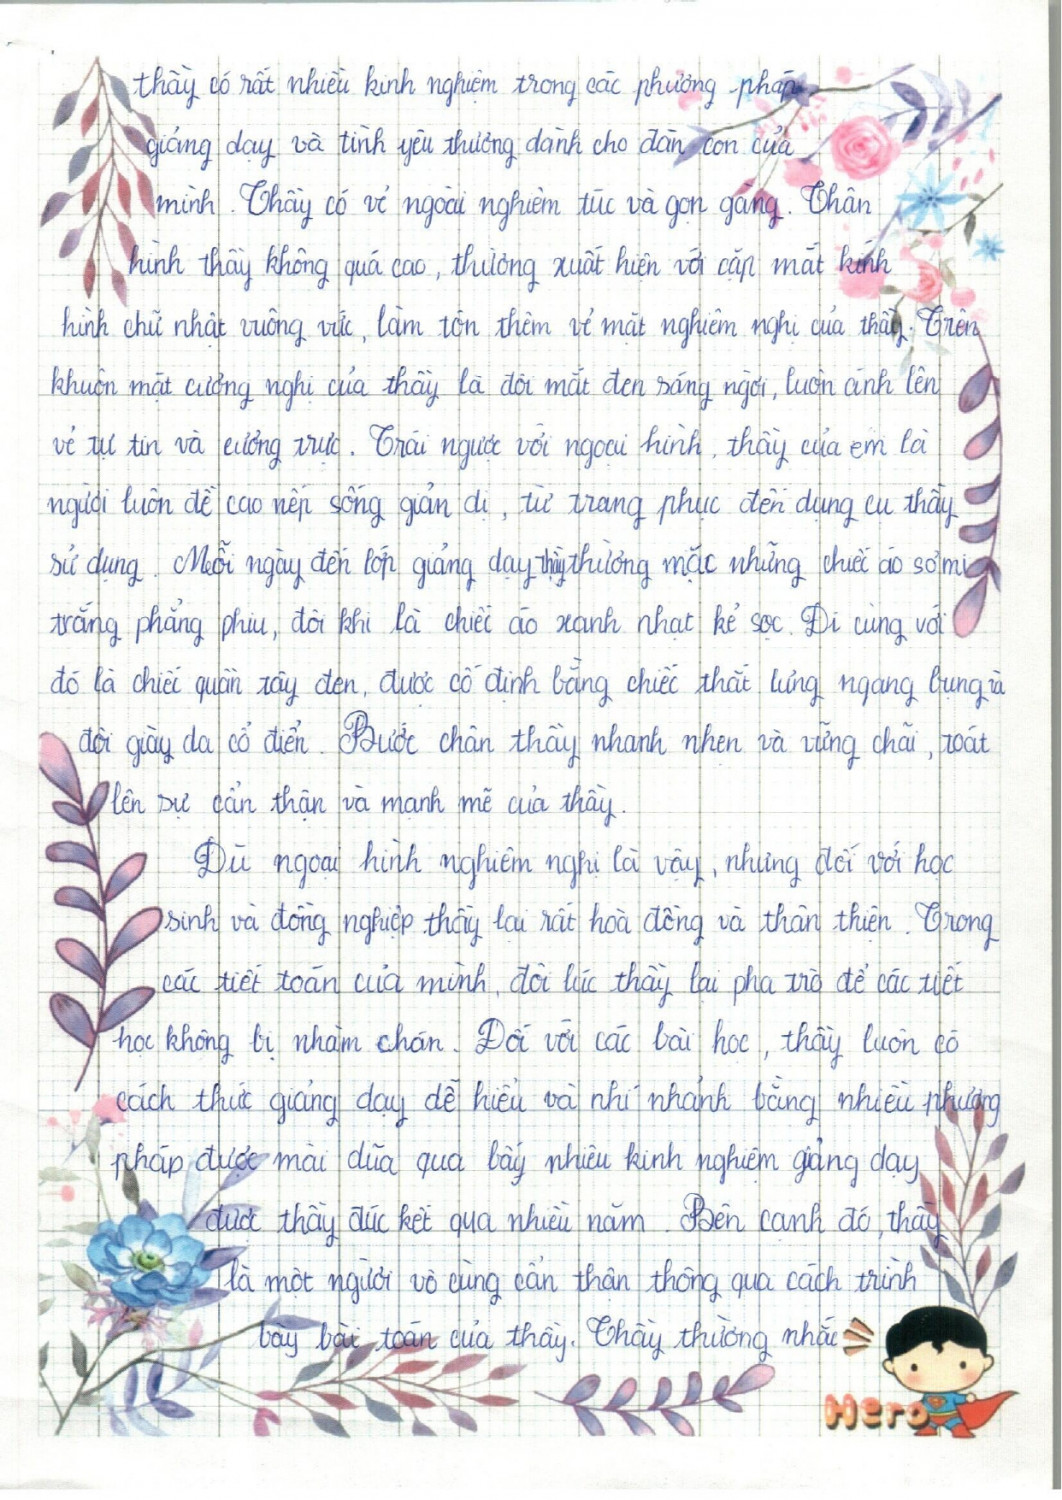 thầy có rất nhiều kinh nghiệm trong các phương pháp
giảng dạy và tình yêu thương dành cho đàn con của
mình. Thầy có vẻ ngoài nghiêm túc và gọn gàng. Thân
hình thầy không quá cao, thường xuất hiện với cặp mắt kính
hình chữ nhật vuông vức, làm tôn thêm vẻ mặt nghiêm nghị của thầy. Trên
khuôn mặt cương nghị của thầy là đôi mắt đen sáng ngời, luôn ánh lên
vẻ tự tin và cương trực. Trái ngược với ngoại hình, thầy của em là
người luôn đề cao nếp sống giản dị, từ trang phục đến dụng cụ thầy
sử dụng. Mỗi ngày đến lớp giảng dạy thầy thường mặc những chiếc áo sơ mi
trắng phẳng phiu, đôi khi là chiếc áo xanh nhạt kẻ sọc. Đi cùng với
đó là chiếc quần tây đen, được cố định bằng chiếc thắt lưng ngang bụng và
đôi giày da cổ điển. Bước chân thầy nhanh nhẹn và vững chãi, toát
lên sự cẩn thận và mạnh mẽ của thầy.
Dù ngoại hình nghiêm nghị là vậy, nhưng đối với học
sinh và đồng nghiệp thầy lại rất hoà đồng và thân thiện. Trong
các tiết toán của mình, đôi lúc thầy lại pha trò để các tiết
học không bị nhàm chán. Đối với các bài học, thầy luôn có
cách thức giảng dạy dễ hiểu và nhí nhảnh bằng nhiều phương
pháp được mài dũa qua bấy nhiêu kinh nghiệm giảng dạy
được thầy đúc kết qua nhiều năm. Bên cạnh đó, thầy
là một người vô cùng cẩn thận thông qua cách trình
bày bài toán của thầy. Thầy thường nhắc
Hero